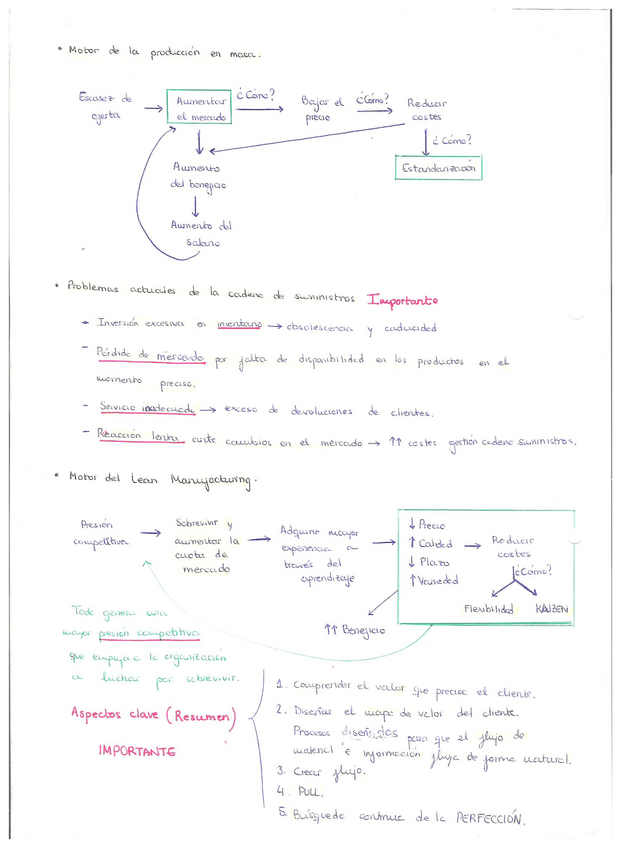 • Motor de la producción en masa.
Escasez de
oferta
→ Aumentar
el mercado
¿Cómo?
Bajar el
precio
¿Cómo?
Reducir
costes
¿Cómo?
Estandarización
Aumento
del beneficio
Aumento del
salario
• Problemas actuales de la cadena de suministros Importante
→ Inversión excesiva en inventario → obsolescencia y caducidad
- Pérdida de mercado por falta de disponibilidad en los productos en el
momento preciso.
- Servicio inadecuado → exceso de devoluciones de clientes.
- Reacción lenta ante cambios en el mercado → ↑↑ costes gestión cadena suministros.
• Motor del Lean Manufacturing.
Presión
competitiva
→ Sobrevivir y
aumentar la
cuota de
mercado
→ Adquirir mayor
experiencia a
través del
aprendizaje
→ ↓ Precio
↑ Calidad
↓ Plazo
↑ Variedad
→ Reducir
costes
¿Cómo?
Flexibilidad KAIZEN
↑↑ Beneficio
Todo genera una
mayor presión competitiva
que empuja a la organización
a luchar por sobrevivir.
Aspectos clave (Resumen)
IMPORTANTE
1. Comprender el valor que precisa el cliente.
2. Diseñar el mapa de valor del cliente.
Procesos diseñados para que el flujo de
material e información fluya de forma natural.
3. Crear flujo.
4. PULL.
5. Búsqueda continua de la PERFECCIÓN.